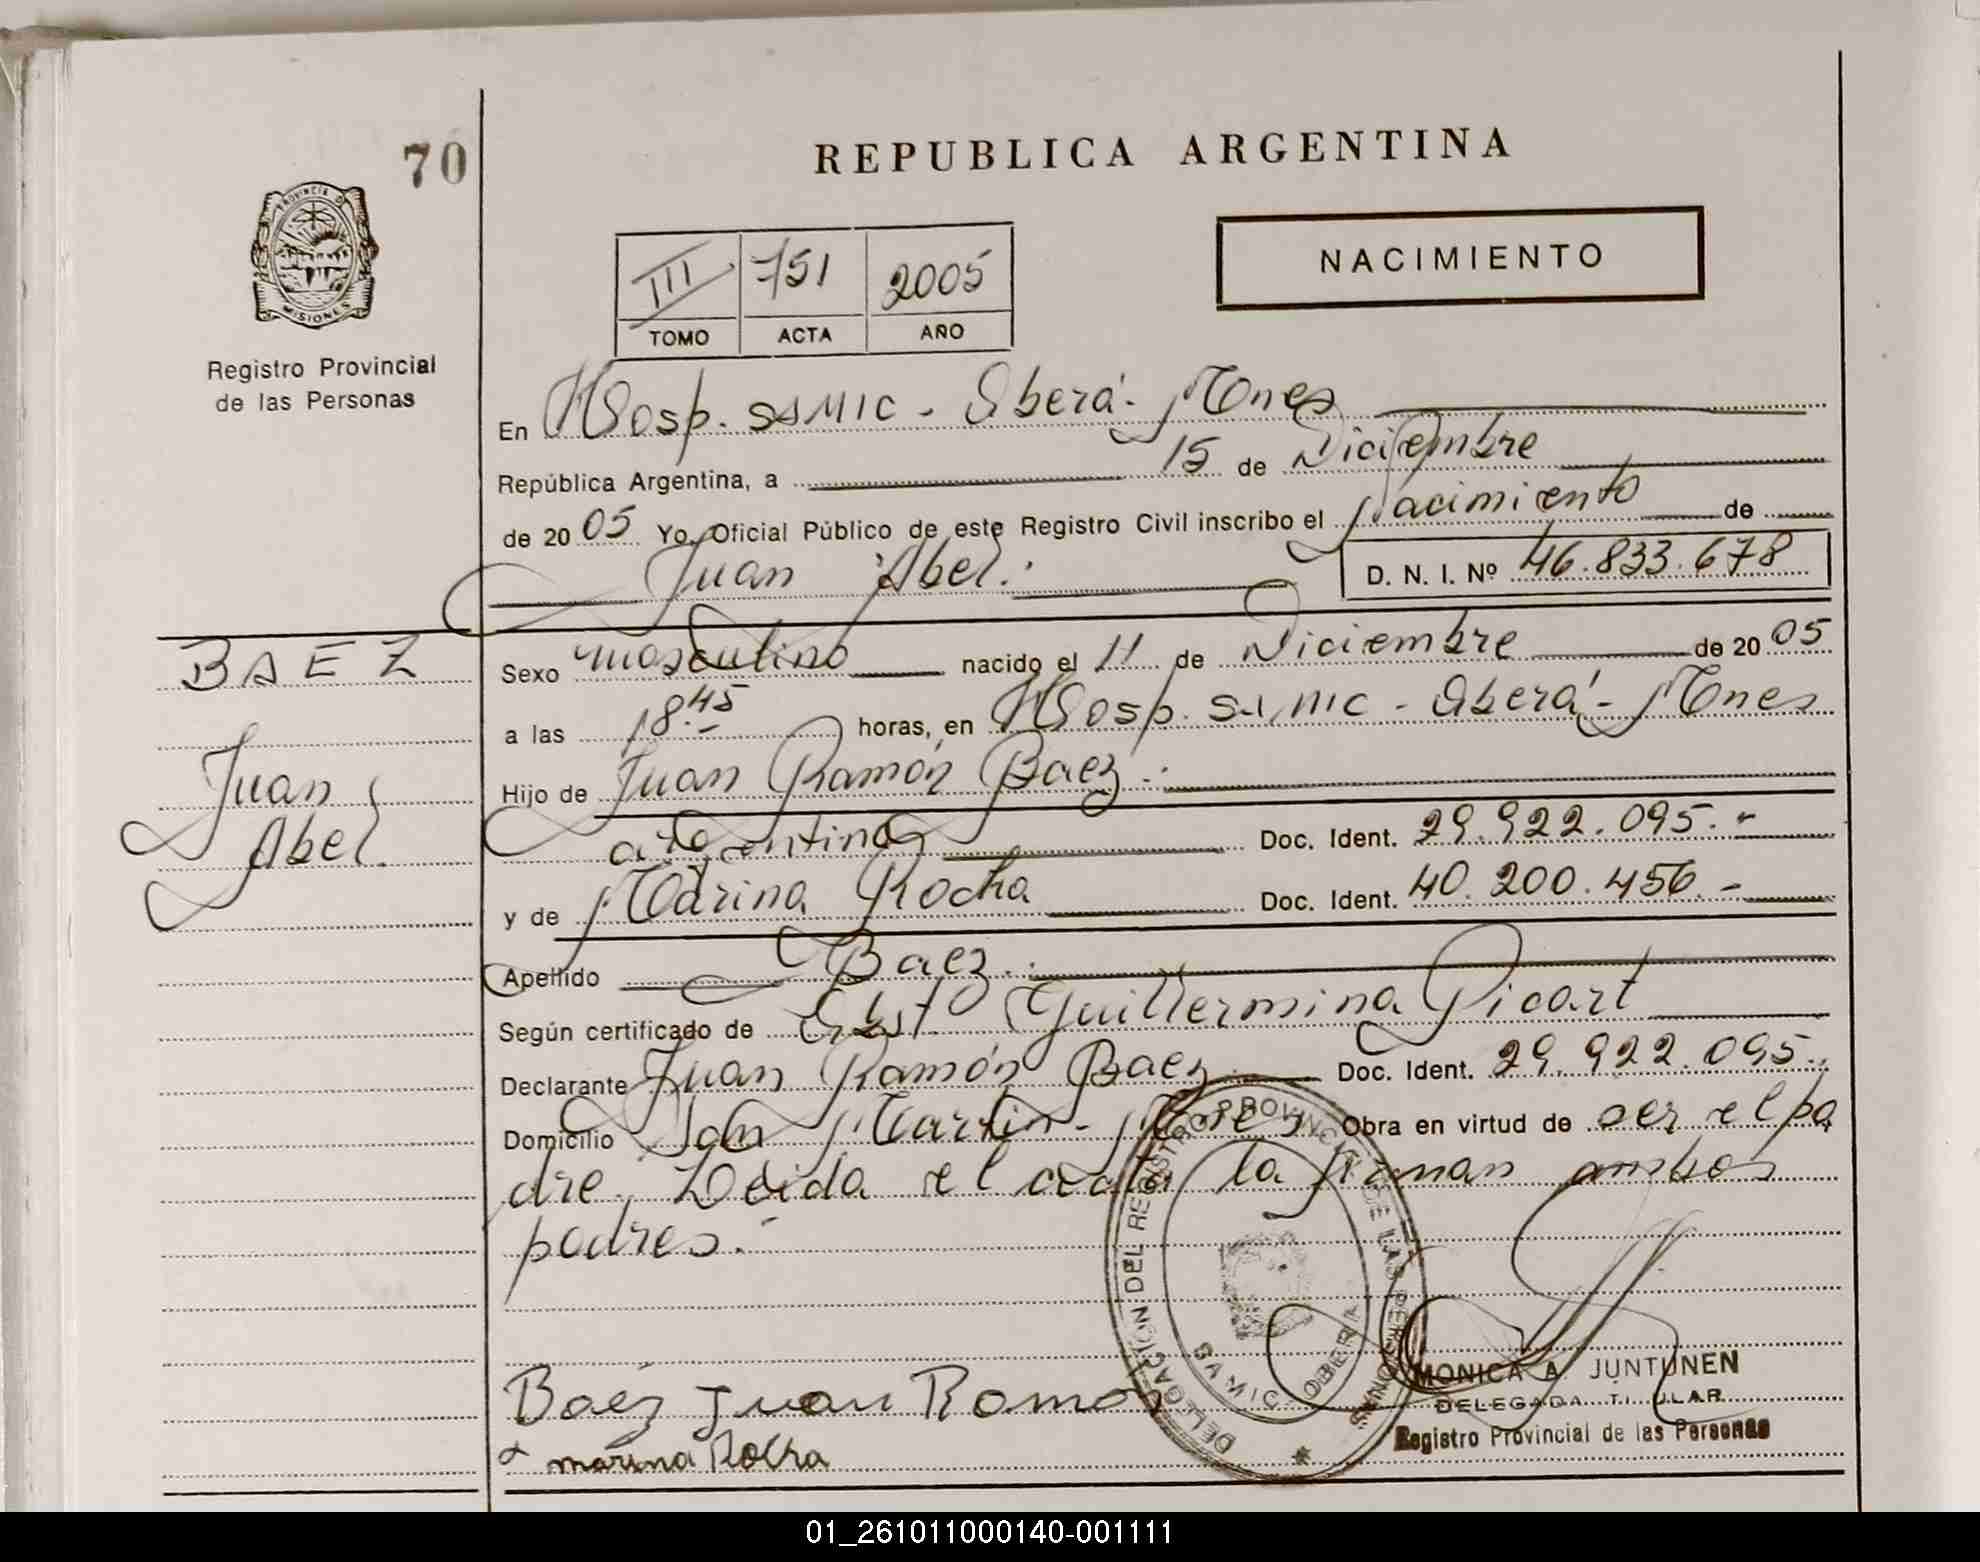 70
REPUBLICA ARGENTINA
PROVINCIA D
MISIONES
Registro Provincial
de las Personas
III 751 2005
TOMO ACTA AÑO
NACIMIENTO
En Hosp. SAMIC - Oberá - Mnes
República Argentina, a 15 de Diciembre
de 2005 Yo, Oficial Público de este Registro Civil inscribo el Nacimiento de
Juan Abel.
D. N. I. Nº 46.833.678
BAEZ
Juan
Abel.
Sexo masculino nacido el 11 de Diciembre de 2005
a las 18.45 horas, en Hosp. SAMIC - Oberá - Mnes
Hijo de Juan Ramón Baez.
argentino Doc. Ident. 29.922.095.-
y de Marina Rocha Doc. Ident. 40.200.456.-
Apellido Baez.
Según certificado de Obst. Guillermina Picart
Declarante Juan Ramón Baez Doc. Ident. 29.922.095.
Domicilio San Martín - Mnes Obra en virtud de ser el pa
dre. Leida el acta la firman ambos
padres.
DELEGACION DEL REGISTRO PROVINCIAL DE LAS PERSONAS
SAMIC OBERA
Baéz Juan Ramon
marina Rocha
MONICA A. JUNTUNEN
DELEGADA TITULAR
Registro Provincial de las Personas
01_261011000140-001111